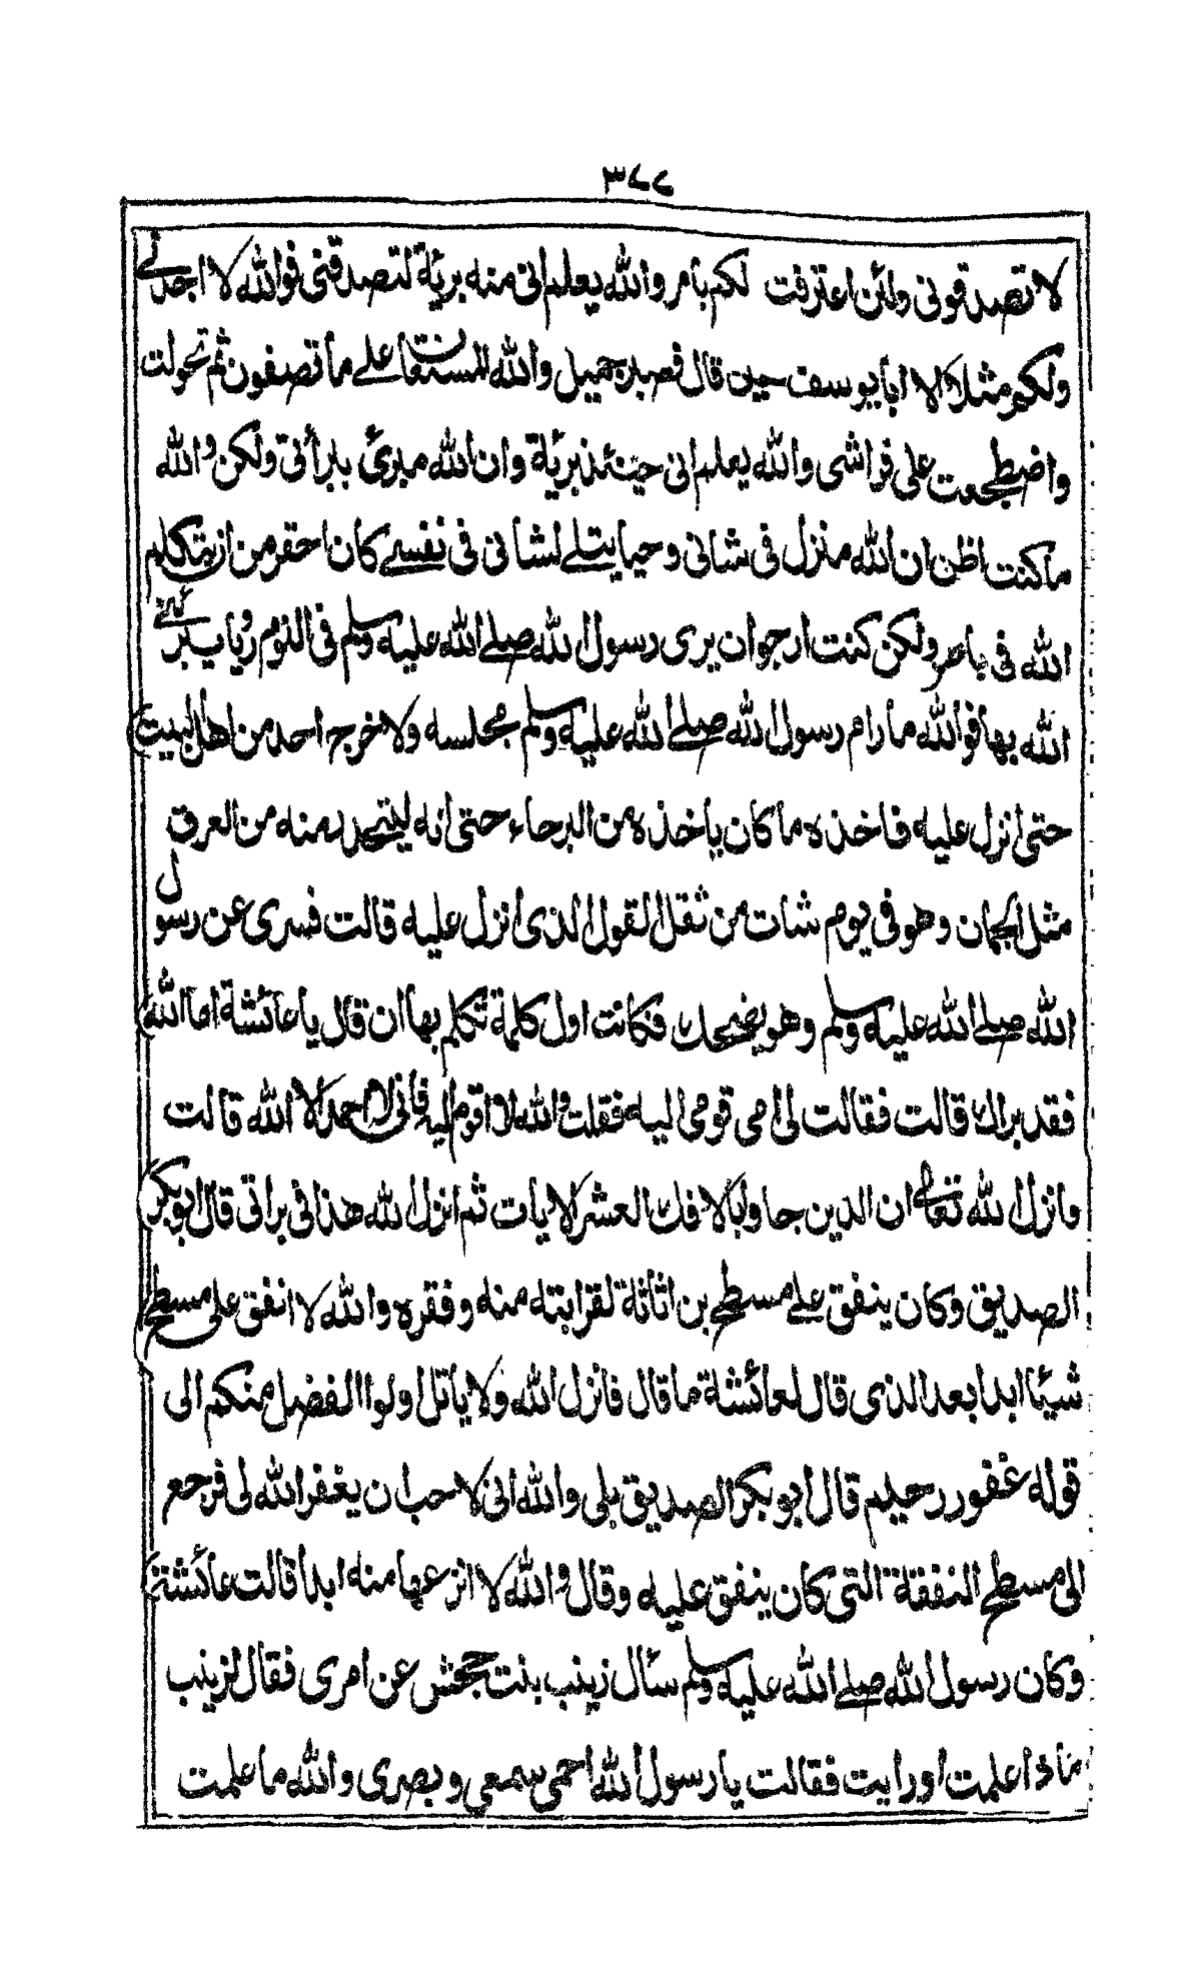 ٣٧٧
لا تصدقوني ولئن اعترفت لكم بامر والله يعلم اني منه برئة لتصدقني فوالله لا اجد لي
ولكم مثلا الا ابا يوسف حين قال فصبر جميل والله المستعان على ما تصفون ثم تحولت
واضطجعت على فراشي والله يعلم اني حينئذ برئة وان الله مبرئ ببرأتي ولكن والله
ما كنت اظن ان الله منزل في شاني وحيا يتلے لشاني في نفسے كان احقر من ان يتكلم
الله في بامر ولكن كنت ارجو ان يرى رسول الله صلے الله عليه وسلم في النوم رؤيا يبرئنے
الله بها فوالله ما رام رسول الله صلے الله عليه وسلم مجلسه ولا خرج احد من اهل البيت
حتى انزل عليه فاخذه ما كان ياخذه من البرحاء حتى انه ليتحدر منه من العرق
مثل الجمان وهو في يوم شات من ثقل القول الذى انزل عليه قالت فسرى عن رسول
الله صلے الله عليه وسلم وهو يضحك فكانت اول كلمة تكلم بها ان قال يا عائشة اما الله
فقد براك قالت فقالت لى امي قومي اليه فقلت والله لا اقوم اليه فانى لا احمد الا الله قالت
وانزل الله تعالے ان الذين جاوا بالافك العشر الايات ثم انزل الله هذا في براتي قال ابو بكر
الصديق وكان ينفق علے مسطح بن اثاثة لقرابته منه وفقره والله لا انفق على مسطح
شيئا ابدا بعد الذى قال لعائشة ما قال فانزل الله ولا ياتل اولوا الفضل منكم الى
قوله غفور رحيم قال ابو بكر الصديق بلى والله انى لاحب ان يغفر الله لى فرجع
الى مسطح النفقة التى كان ينفق عليه وقال والله لا انزعها منه ابدا قالت عائشة
وكان رسول الله صلے الله عليه وسلم سأل زينب بنت جحش عن امرى فقال لزينب
ماذا علمت او رايت فقالت يا رسول الله احمى سمعي وبصرى والله ما علمت